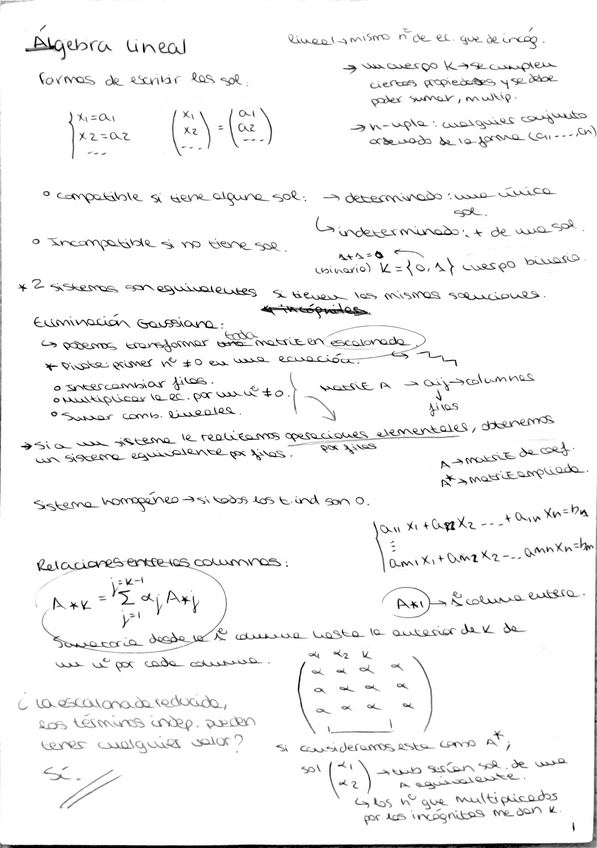 Álgebra lineal
lineal → mismo nº de ec. que de incóg.
Formas de escribir las sol:
→ un cuerpo K → se cumplen
ciertas propiedades y se debe
poder sumar, multip.
→ n-upla: cualquier conjunto
ordenado de la forma (a1, ..., cn)
{ x1 = a1
x2 = a2
...
(x1 x2 ...) = (a1 a2 ...)
° compatible si tiene alguna sol: → determinado: una única
sol.
↳ indeterminado: + de una sol.
° Incompatible si no tiene sol.
1+1=0
(binario) K = {0, 1} cuerpo binario.
* 2 sistemas son equivalentes si tienen las mismas soluciones.
incógnitas
Eliminación Gaussiana:
↳ podemos transformar toda matriz en escalonada.
* Pivote: primer nº ≠ 0 en una ecuación.
° Intercambiar filas.
° Multiplicar la ec. por un nº ≠ 0.
° Sumar comb. lineales.
matriz A → aij → columnas
filas
→ Si a un sistema le realizamos operaciones elementales, obtenemos
por filas
un sistema equivalente por filas.
A → matriz de coef.
A* → matriz ampliada.
Sistema homogéneo → si todos los t. ind son 0.
{ a11 x1 + a12 x2 ... + a1n xn = bn
⋮
am1 x1 + am2 x2 ... amn xn = bm
Relaciones entre las columnas:
A*k = Σ αj A*j
j=k-1
j=1
A*1 → 1º columna entera.
Sumatoria desde la 1º columna hasta la anterior de K de
un nº por cada columna.
α1 α2 K
α α α α
α α α α
α α α α
¿ La escalonada reducida,
los términos indep. pueden
tener cualquier valor?
Sí.
si consideramos esta como A*,
sol (α1 α2) → tmb serían sol. de una
A equivalente.
↳ los nº que multiplicados
por las incógnitas me dan K.
1